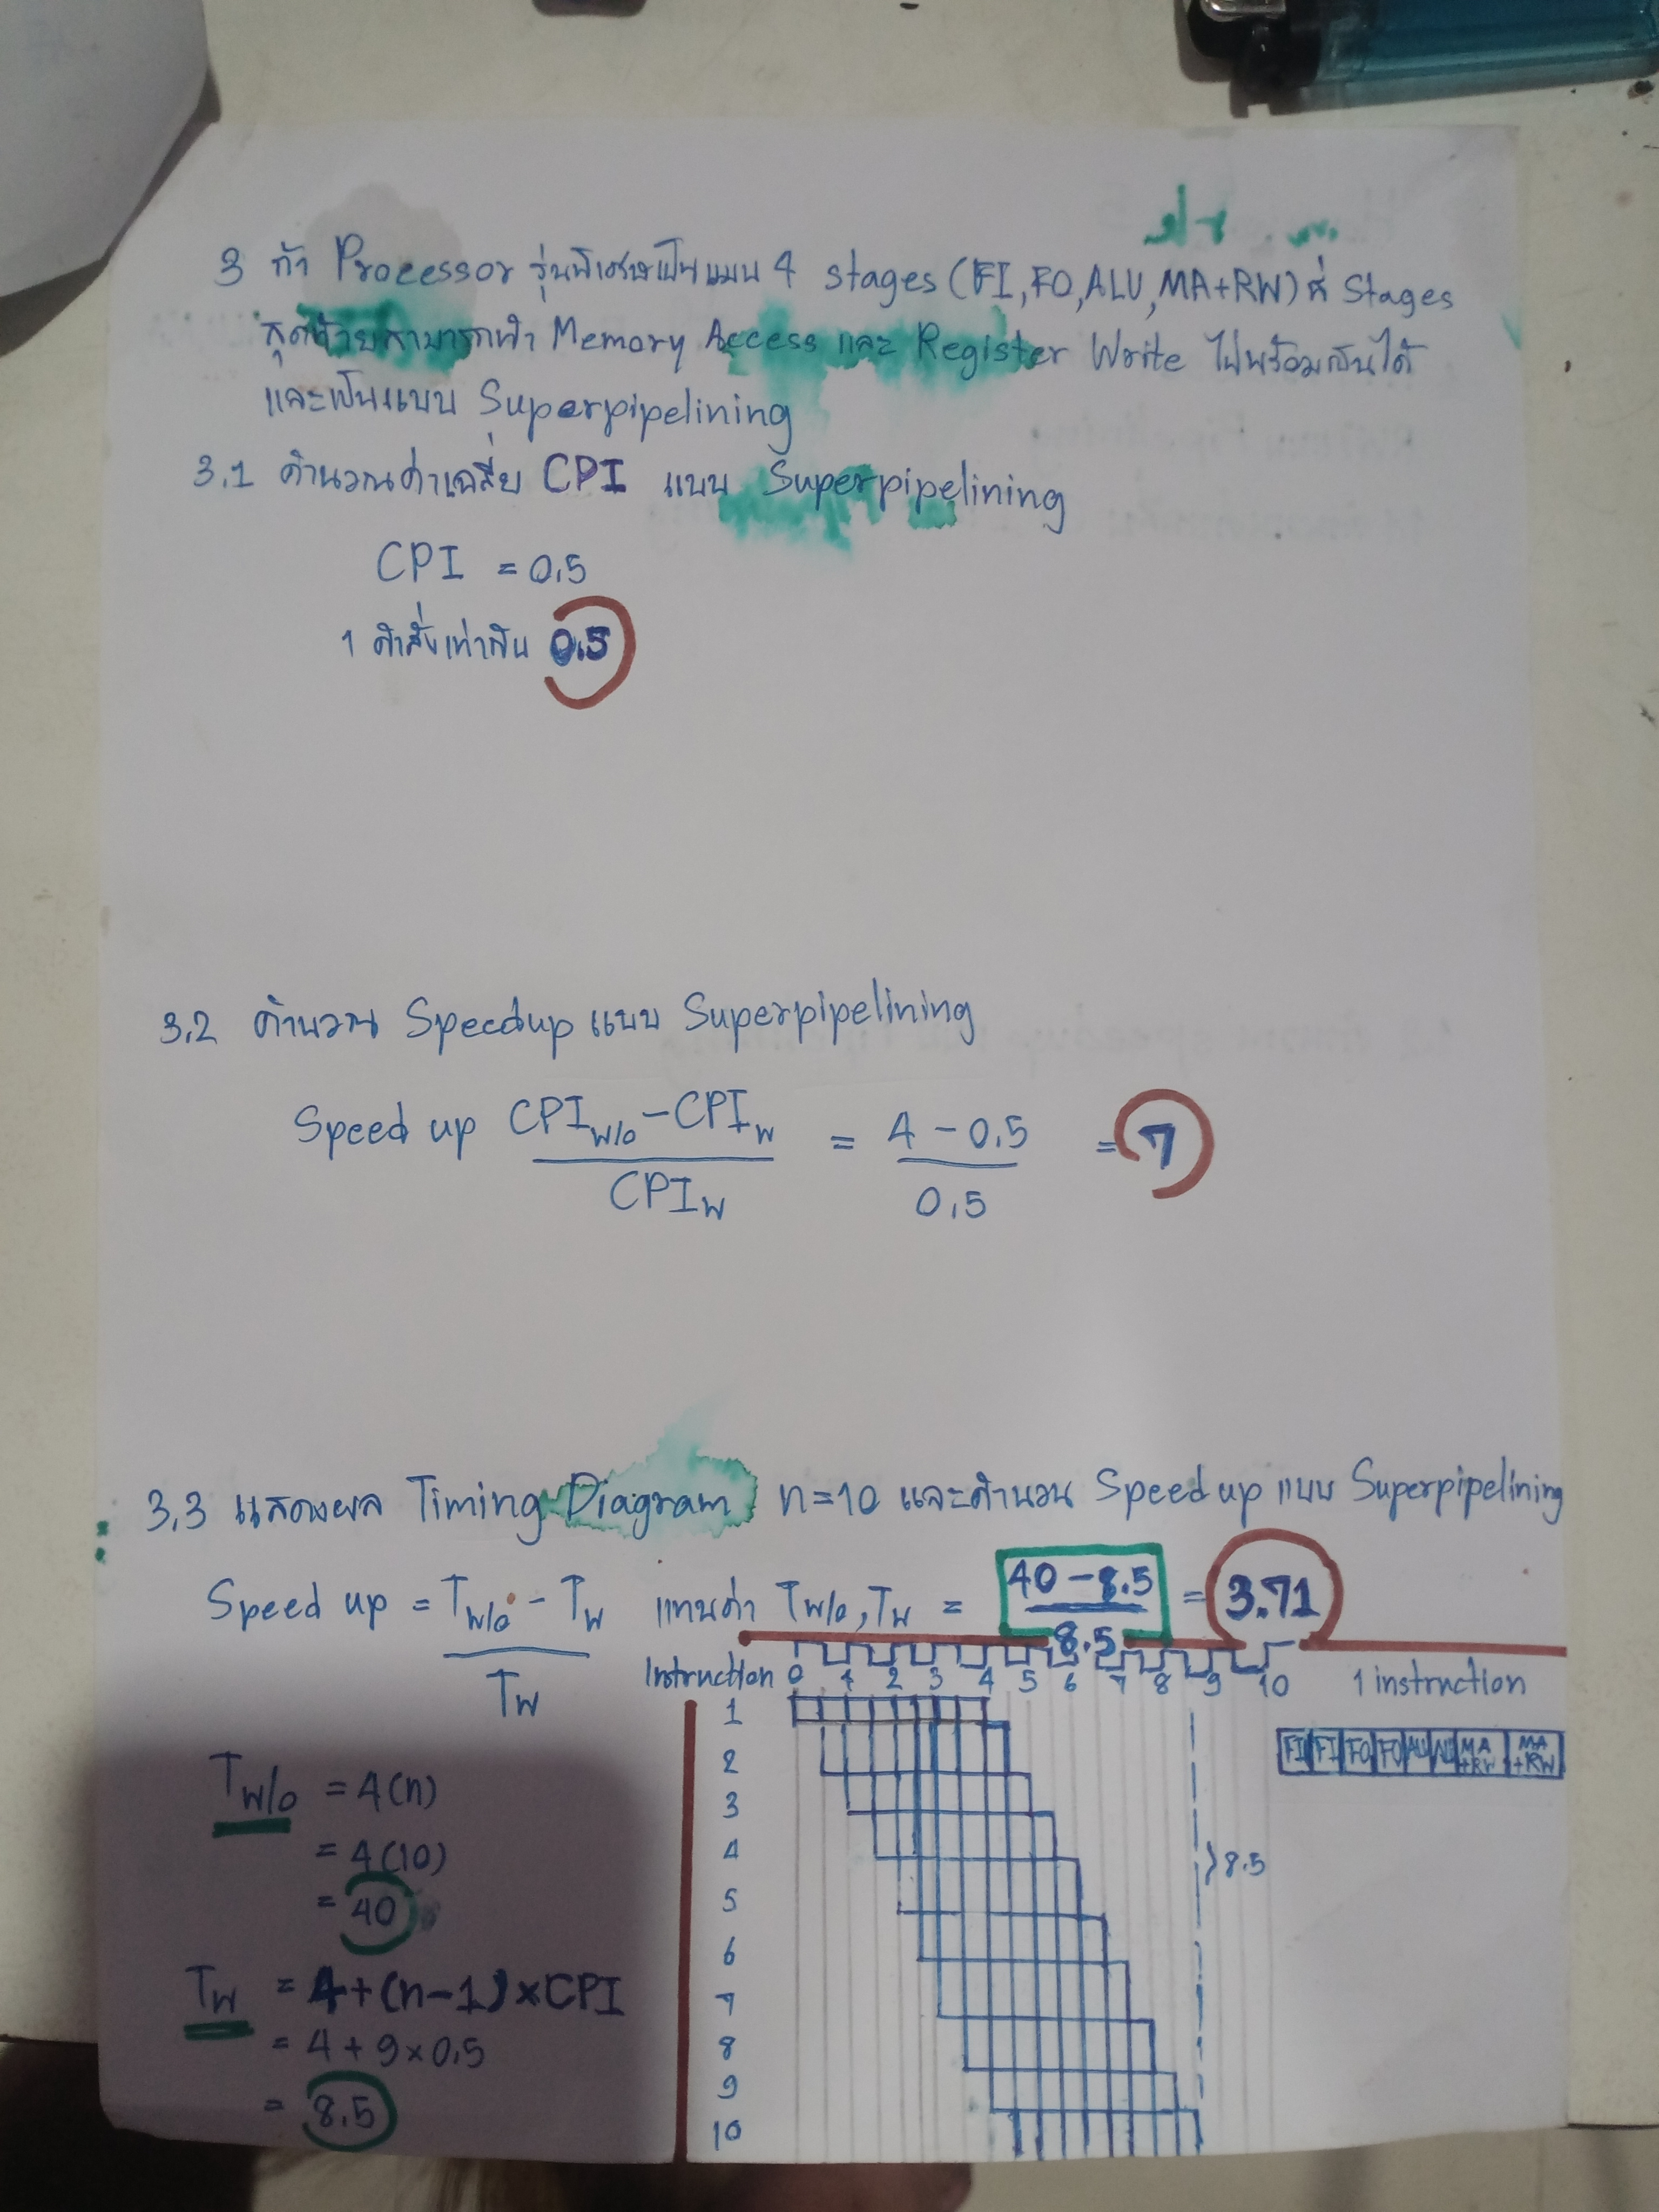 3 ถ้า Processor รุ่นพิเศษเป็นแบบ 4 stages (FI,FO,ALU,MA+RW) ที่ Stages
สุดท้ายสามารถทำ Memory Access และ Register Write ไปพร้อมกันได้
และเป็นแบบ Superpipelining
3.1 คำนวณค่าเฉลี่ย CPI แบบ Superpipelining
CPI = 0.5
1 คำสั่งเท่ากับ 0.5
3.2 คำนวณ Speedup แบบ Superpipelining
Speed up CPIw/o - CPIw / CPIw = 4 - 0.5 / 0.5 = 7
3.3 แสดงผล Timing Diagram n=10 และคำนวน Speed up แบบ Superpipelining
Speed up = Tw/o - Tw / Tw แทนค่า Tw/o, Tw = 40 - 8.5 / 8.5 = 3.71
Instruction 0 1 2 3 4 5 6 7 8 9 10 1 instruction
1
2
3
4
5
6
7
8
9
10
FI FI FO FO ALU ALU MA+RW MA+RW
} 8.5
Tw/o = 4(n)
= 4(10)
= 40
Tw = 4+(n-1)×CPI
= 4 + 9×0.5
= 8.5